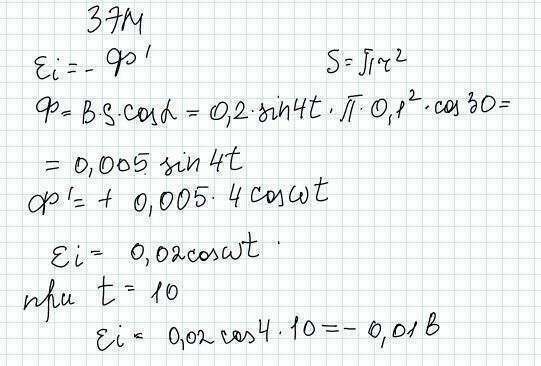 ЭТМ
εi = - Ф'
S = πr²
Ф = B·S·cosα = 0,2·sin4t·π·0,1²·cos30 =
= 0,005 sin4t
Ф' = + 0,005·4cosωt
εi = 0,02cosωt.
при t = 10
εi = 0,02cos4·10 = - 0,01В